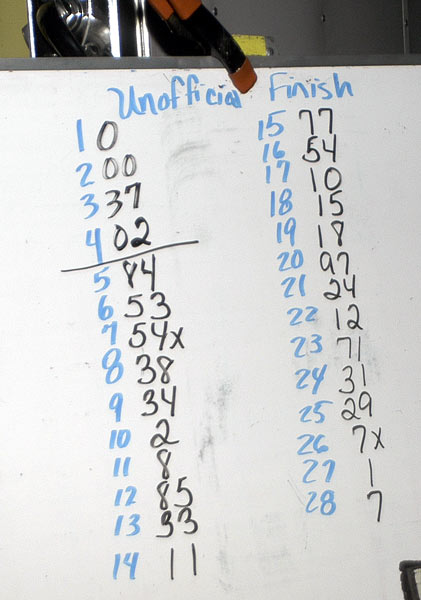 Unofficial Finish
1 0
2 00
3 37
4 02
5 84
6 53
7 54x
8 38
9 34
10 2
11 8
12 85
13 33
14 11
15 77
16 54
17 10
18 15
19 18
20 97
21 24
22 12
23 71
24 31
25 29
26 7x
27 1
28 7